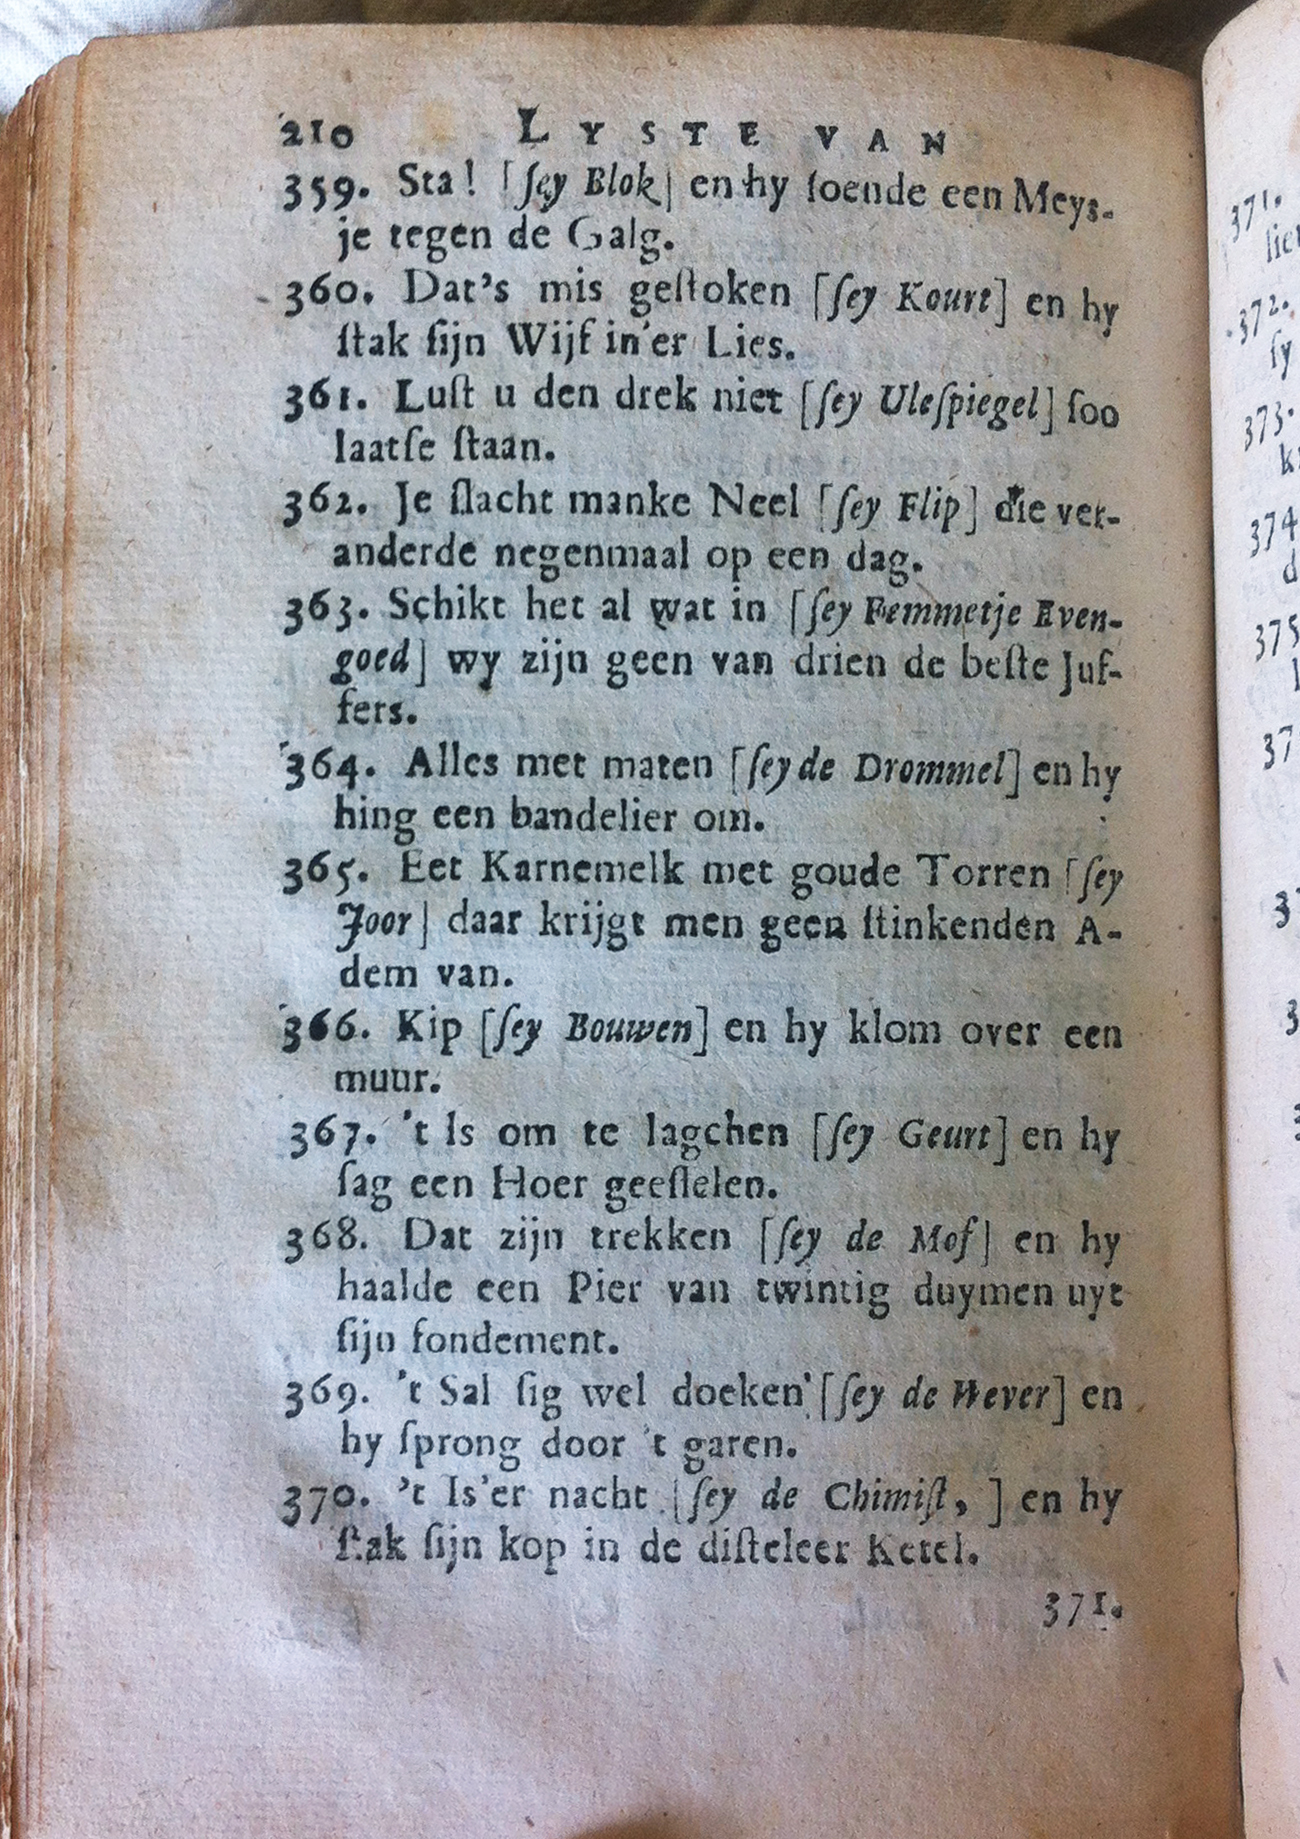 210 LYSTE VAN
359. Sta! [ſey Blok] en hy ſoende een Meys-
je tegen de Galg.
360. Dat's mis geſtoken [ſey Kourt] en hy
ſtak ſijn Wijf in'er Lies.
361. Luſt u den drek niet [ſey Uleſpiegel] ſoo
laatſe ſtaan.
362. Je ſlacht manke Neel [ſey Flip] die ver-
anderde negenmaal op een dag.
363. Schikt het al wat in [ſey Femmetje Even-
goed] wy zijn geen van drien de beſte Juf-
fers.
364. Alles met maten [ſey de Drommel] en hy
hing een bandelier om.
365. Eet Karnemelk met goude Torren [ſey
Joor] daar krijgt men geen ſtinkenden A-
dem van.
366. Kip [ſey Bouwen] en hy klom over een
muur.
367. 't Is om te lagchen [ſey Geurt] en hy
ſag een Hoer geeſſelen.
368. Dat zijn trekken [ſey de Mof] en hy
haalde een Pier van twintig duymen uyt
ſijn fondement.
369. 't Sal ſig wel doeken [ſey de Wever] en
hy ſprong door 't garen.
370. 't Is'er nacht [ſey de Chimiſt, ] en hy
ſtak ſijn kop in de diſteleer Ketel.
371.
371.
372.
ſy
373.
374
d
375
37